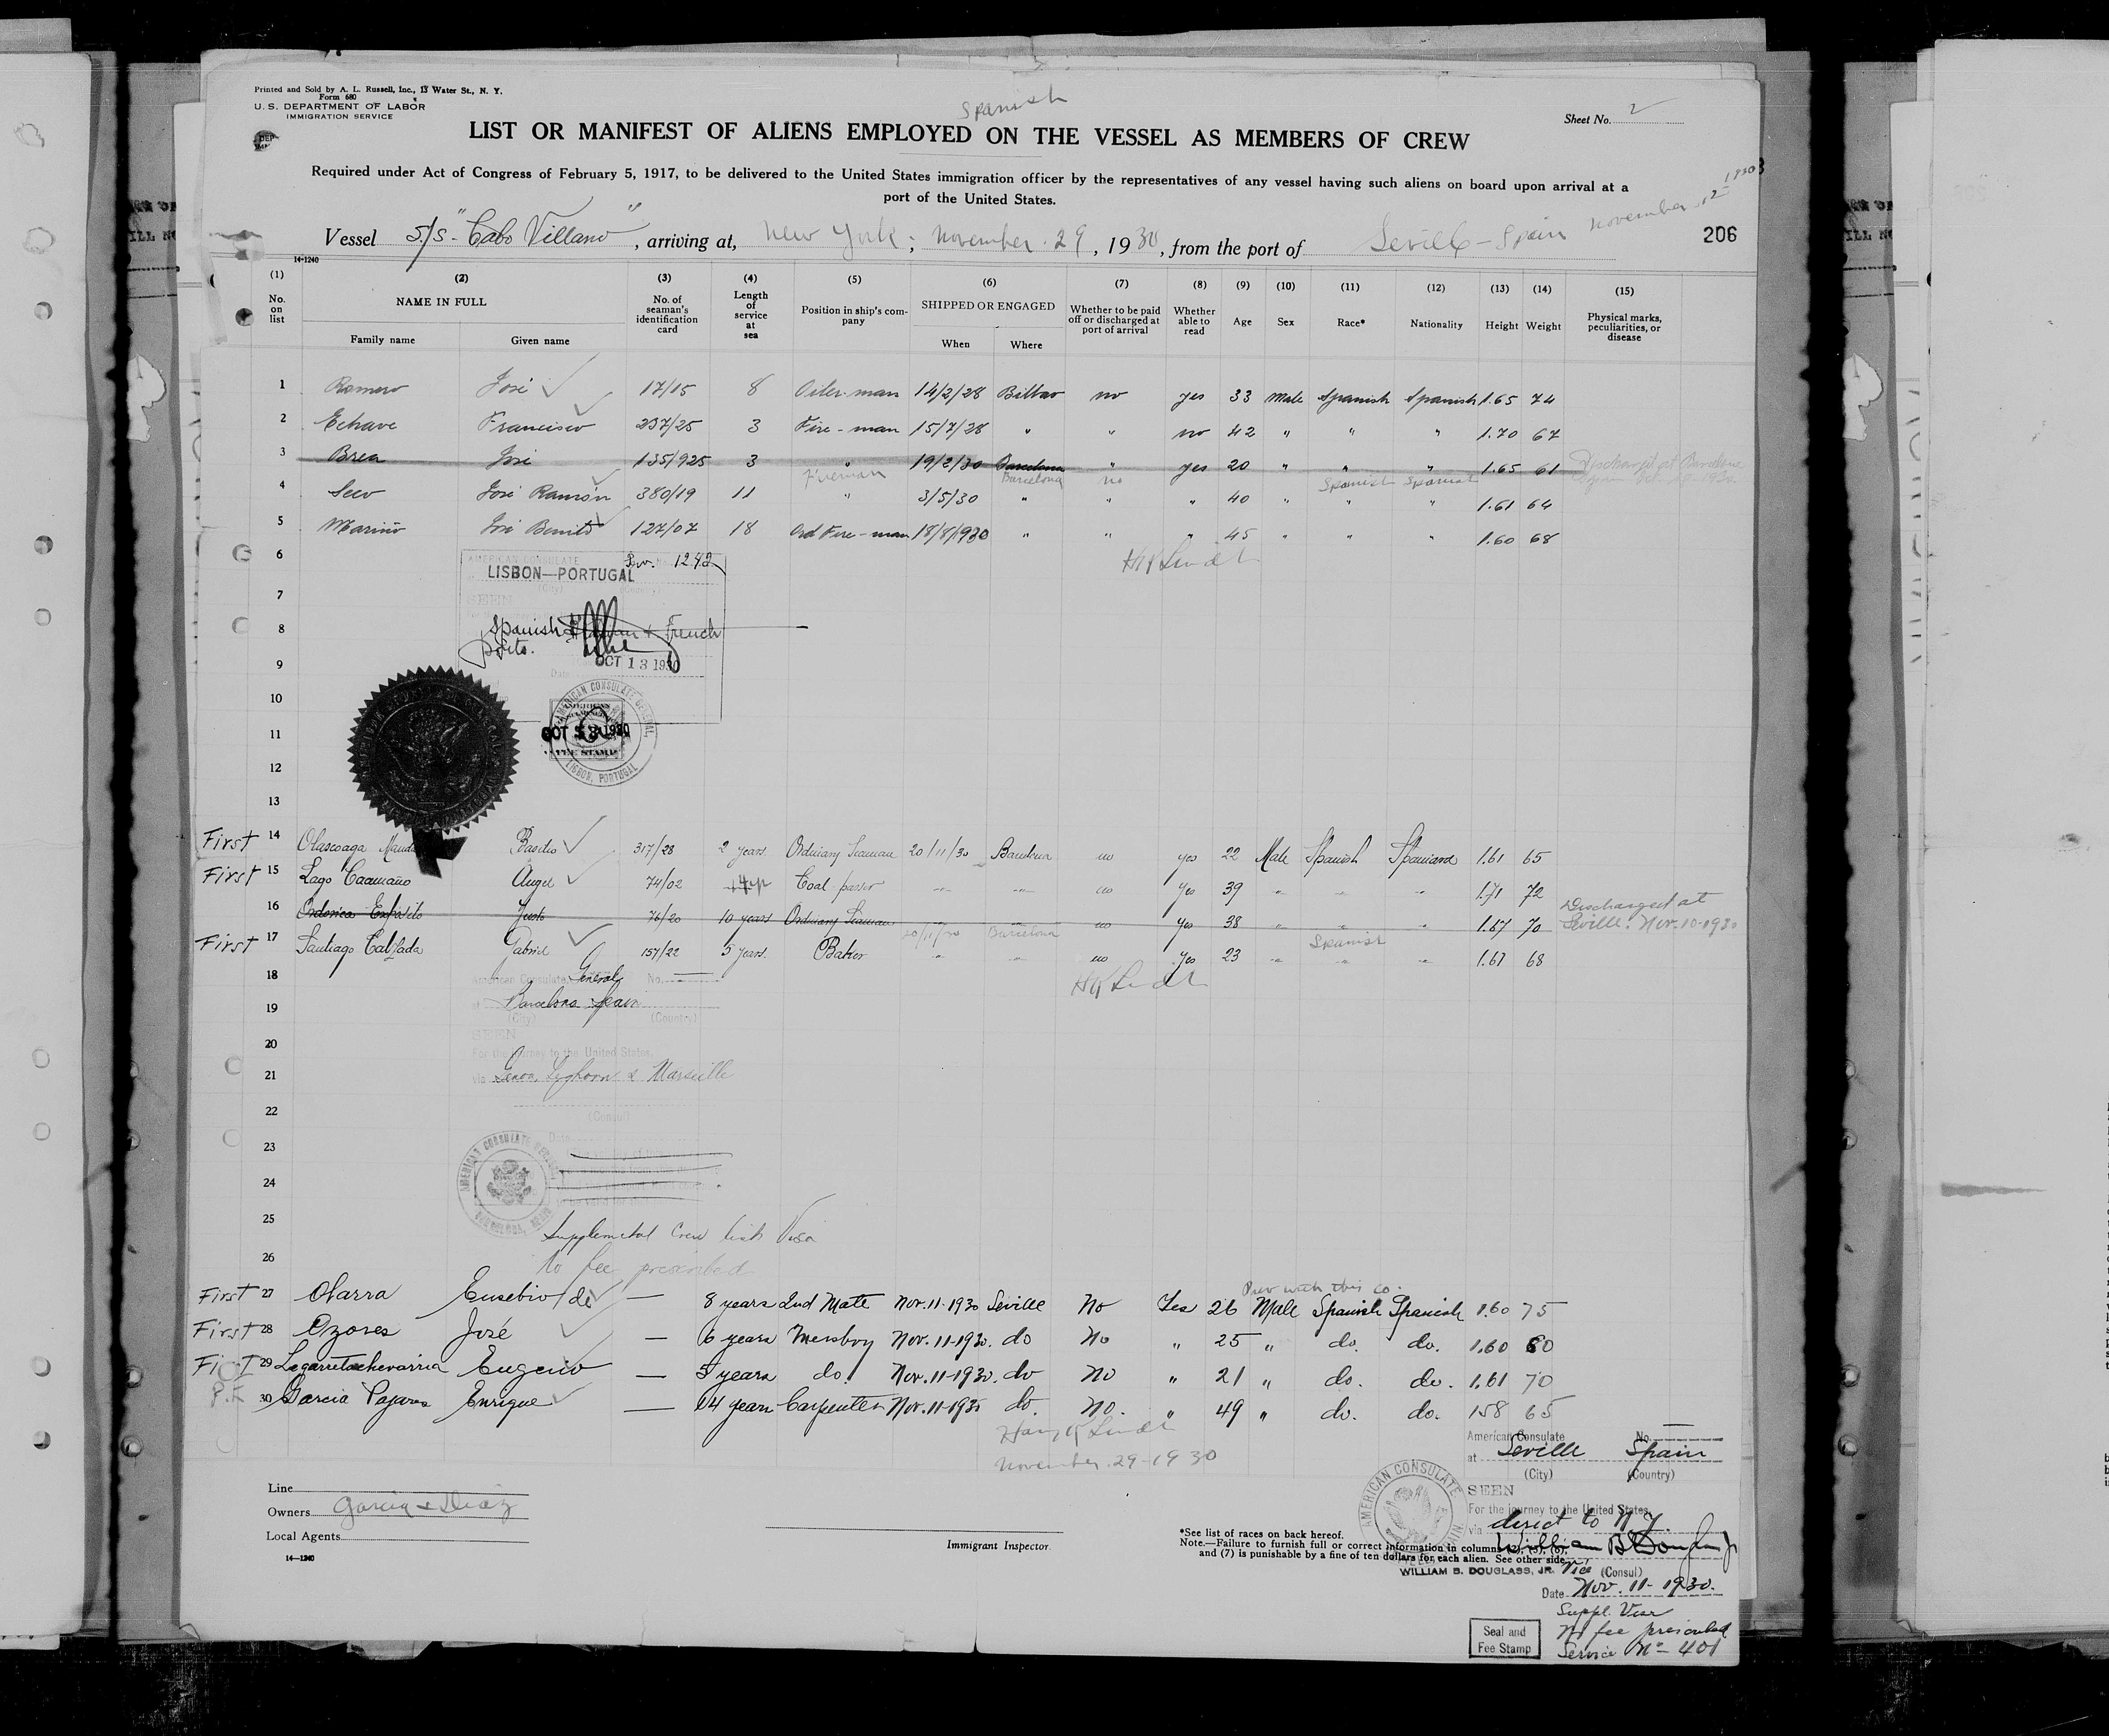 Printed and Sold by A. L. Russell, Inc., 13 Water St., N. Y.
Form 680
U. S. DEPARTMENT OF LABOR
IMMIGRATION SERVICE
Spanish
Sheet No. 2
LIST OR MANIFEST OF ALIENS EMPLOYED ON THE VESSEL AS MEMBERS OF CREW
Required under Act of Congress of February 5, 1917, to be delivered to the United States immigration officer by the representatives of any vessel having such aliens on board upon arrival at a
port of the United States.
Vessel S/S "Cabo Villano", arriving at, New York; November 29, 1930, from the port of Seville - Spain November 12 1930
206
14-1240
(1) (2) (3) (4) (5) (6) (7) (8) (9) (10) (11) (12) (13) (14) (15)
No. on list NAME IN FULL Family name Given name No. of seaman's identification card Length of service at sea Position in ship's company SHIPPED OR ENGAGED When Where Whether to be paid off or discharged at port of arrival Whether able to read Age Sex Race* Nationality Height Weight Physical marks, peculiarities, or disease
1 Romero José 17/15 8 Oiler-man 14/2/28 Bilbao no yes 33 Male Spanish Spanish 1.65 74
2 Echave Francisco 237/25 3 Fire-man 15/7/28 " " no 42 " " " 1.70 67
3 Brea José 135/925 3 " 19/2/30 Barcelona " yes 20 " " " 1.65 61 Discharged at Barcelona
Fireman Barcelona no Spanish Spanish
4 Seco José Ramón 380/19 11 " 3/5/30 " " " 40 " " " 1.61 64
5 Mariño José Benito 127/07 18 Ord Fire-man 18/8/1930 " " " 45 " " " 1.60 68
6 AMERICAN CONSULATE 1242
LISBON—PORTUGAL
(City) (Country)
7 SEEN
8 Spanish French
ports.
9 OCT 13 1930
10 AMERICAN CONSULATE GENERAL
11 OCT 13 1930
FEE STAMP
12 LISBON, PORTUGAL
13
First 14 Olascoaga Basilio 317/28 2 years Ordinary Seaman 20/11/30 Barcelona no yes 22 Male Spanish Spaniard 1.61 65
First 15 Lago Caamaño Angel 74/02 Coal passer no yes 39 1.71 72
16 Ordorica Expósito Justo 76/20 10 years Ordinary Seaman no yes 38 1.67 70 Discharged at Seville. Nov. 10-1930
20/11/30 Barcelona Spanish
First 17 Santiago Calzada Gabriel 157/22 5 years. Baker no yes 23 1.67 68
18 American Consulate General No.
at Barcelona Spain
19 (City) (Country)
20 SEEN
For the journey to the United States,
21 via Genoa, Leghorn & Marseille
22 (Consul)
23 Date
24
25 Supplemental Crew list Visa
26 No fee prescribed
with this co.
First 27 Olarra Eusebio de — 8 years 2nd Mate Nov. 11-1930 Seville No Yes 26 Male Spanish Spanish 1.60 75
First 28 Ozores José — 6 years Messboy Nov. 11-1930. do No " 25 " do. do. 1.60 60
First 29 Legarretaechevarria Eugenio — 5 years do. Nov. 11-1930. do No " 21 " do. do. 1.61 70
P.F 30 Garcia Pajares Enrique — 14 years Carpenter Nov. 11-1930 do. No. " 49 " do. do. 158 65
November 29-1930
Line
Owners Garcia & Diaz
Local Agents
14—1240
Immigrant Inspector.
*See list of races on back hereof.
Note.—Failure to furnish full or correct information in columns (2), (5), (6),
and (7) is punishable by a fine of ten dollars for each alien. See other side.
American Consulate No.
at Seville Spain
(City) (Country)
SEEN
For the journey to the United States,
via direct to N.Y.
William B Douglass Jr
WILLIAM B. DOUGLASS, JR. Vice (Consul)
Date Nov. 11-1930.
AMERICAN CONSULATE
Suppl. Visa
No fee prescribed
Service No - 401
Seal and
Fee Stamp